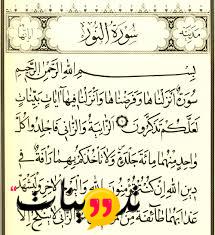 مدنية
سورة النور
بسم الله الرحمن الرحيم
سورة أنزلناها وفرضناها وأنزلنا فيها آيات بينات
لعلكم تذكرون الزانية والزاني فاجلدوا كل
واحد منهما مائة جلدة ولا تأخذكم بهما رأفة في
دين الله إن كنتم تؤمنون بالله واليوم الآخر وليشهد
تدوينات
عذابهما طائفة من لا ينكح إلا